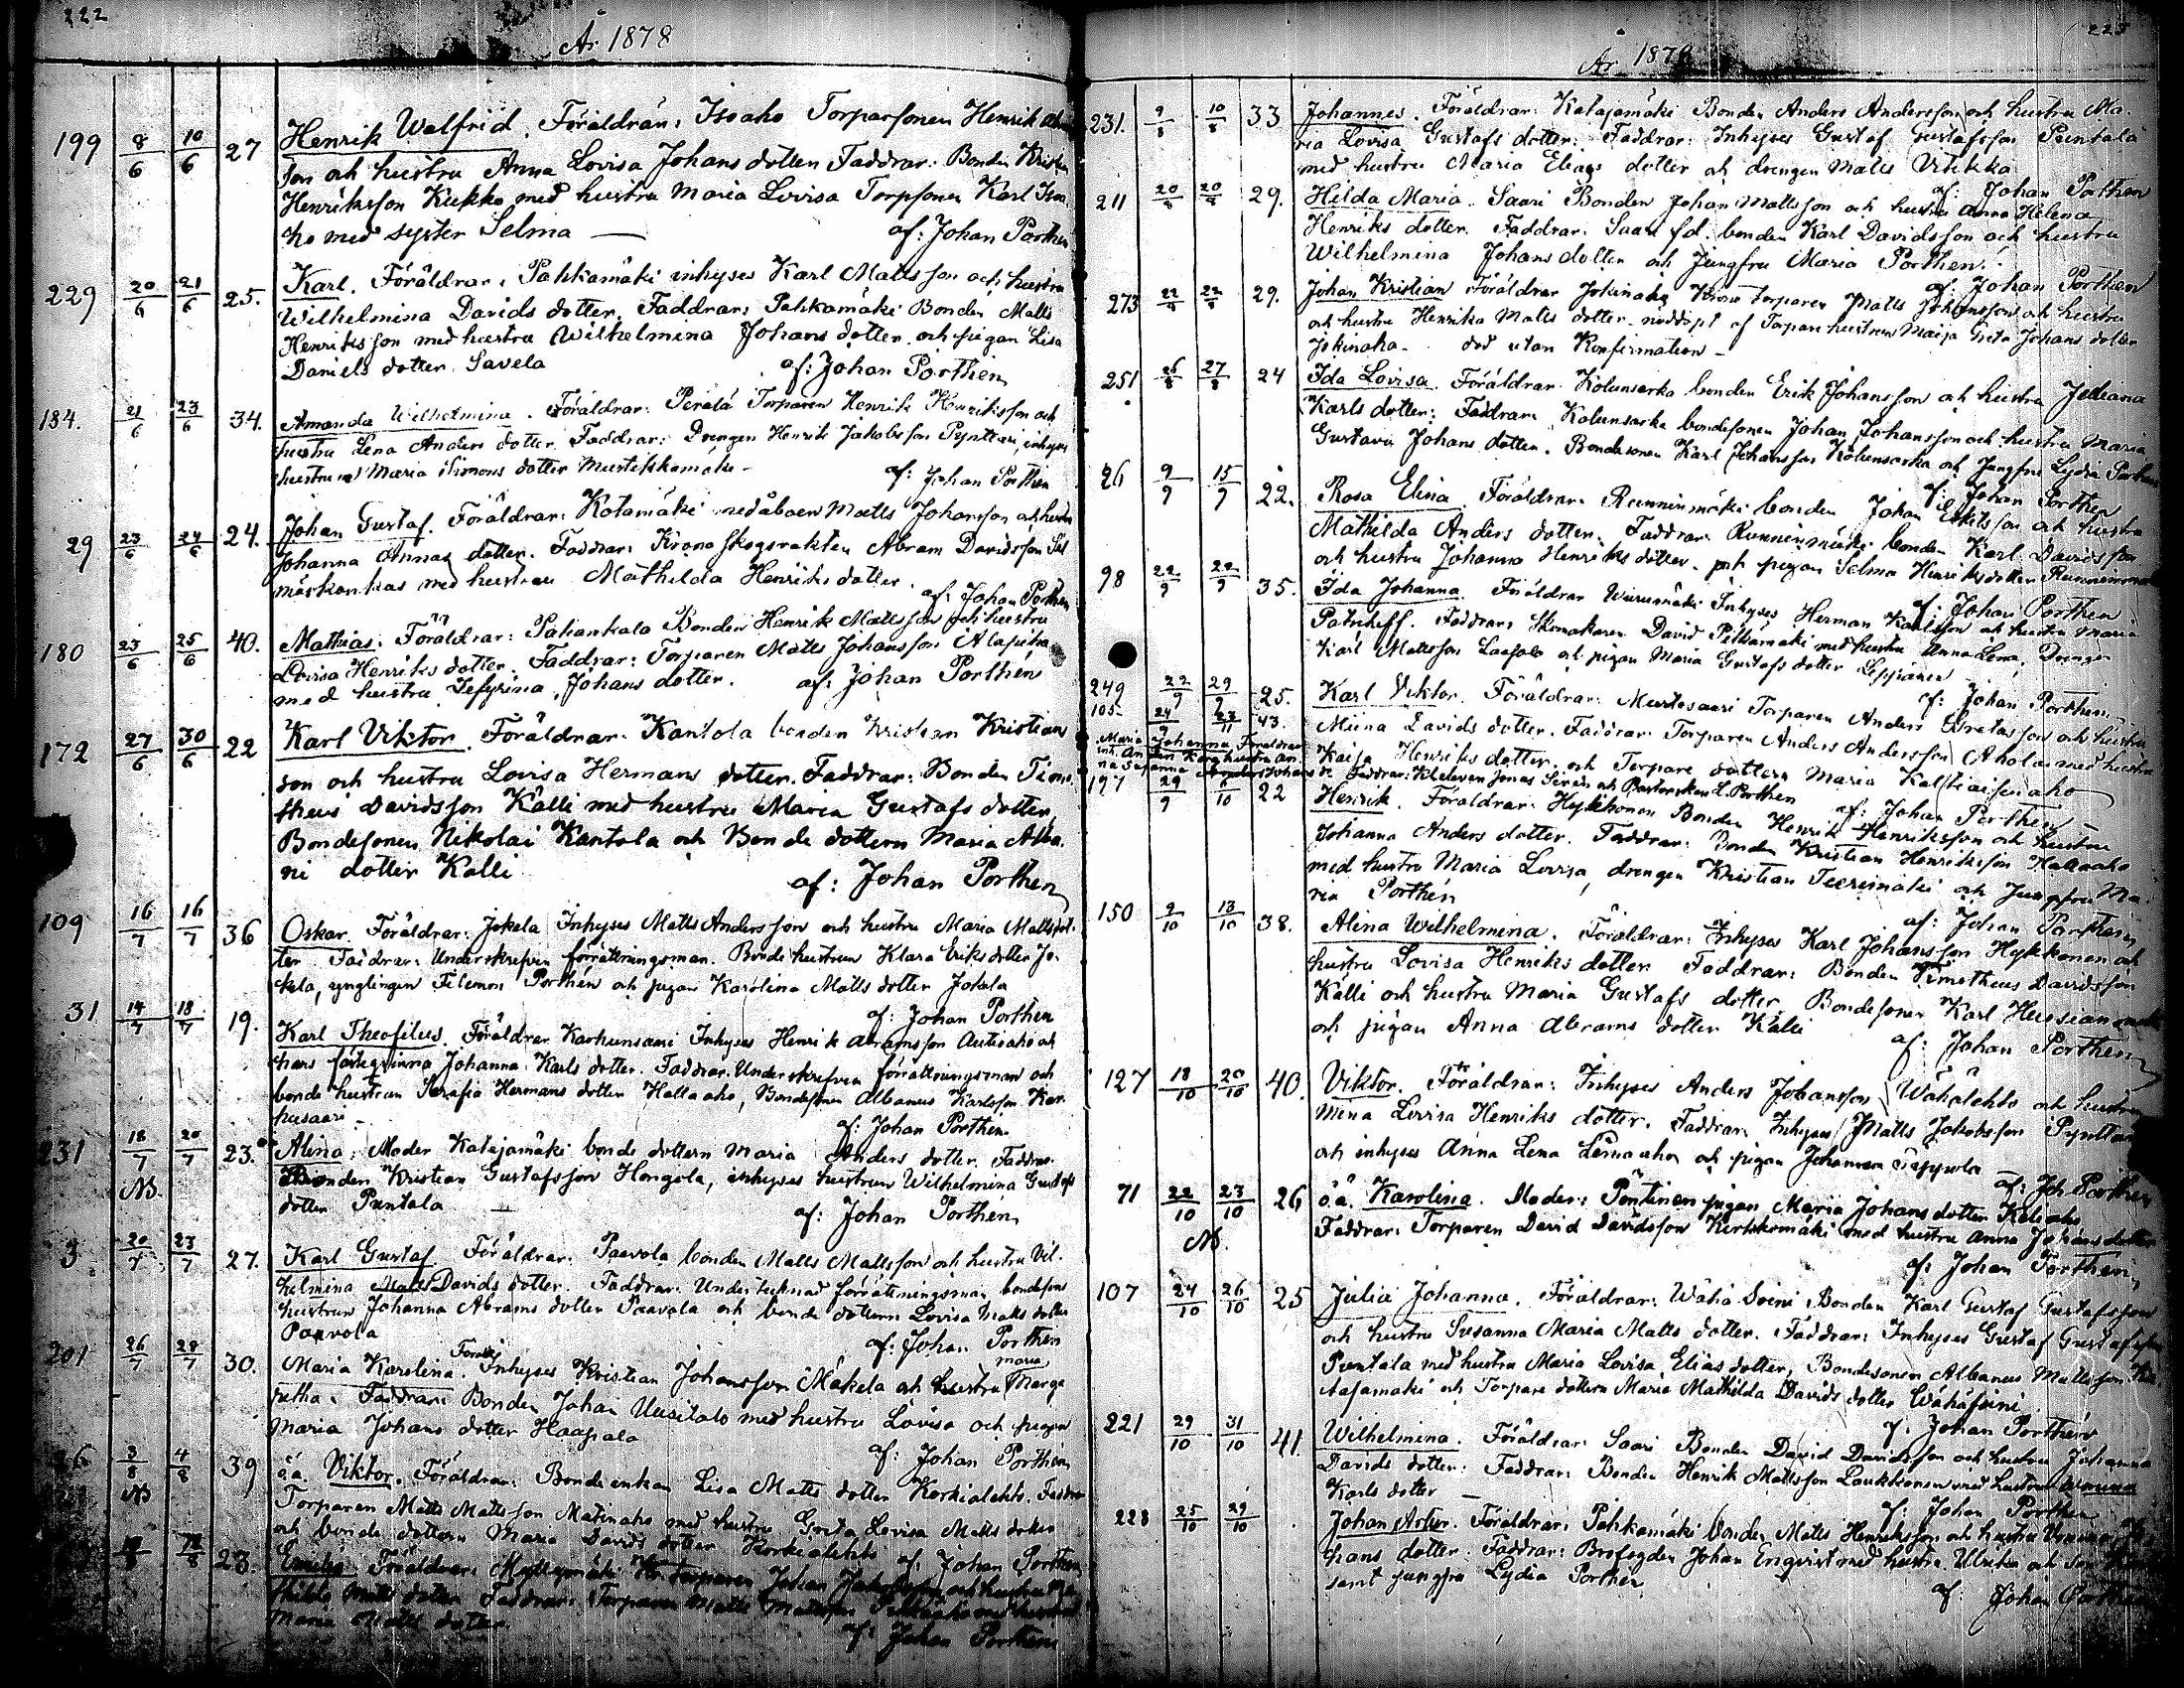 222
År 1878
199 8/6 10/6 27 Henrik Walfrid. Föräldrar: Isoaho Torparsonen Henrik
son och hustru Anna Lovisa Johans dotter Faddrar: Bonden Kristian
Henriksson Kukko med hustru Maria Lovisa Torpsonen Karl Isoa
ho med syster Selma — af: Johan Porthen
229 20/6 21/6 25. Karl. Föräldrar: Pahkamäki inhyses Karl Matts son och hustru
Wilhelmina Davids dotter. Faddrar: Pahkamäki Bonden Matts
Henriksson med hustru Wilhelmina Johans dotter och pigan Lisa
Daniels dotter Savela af: Johan Porthen
184. 21/6 23/6 34. Amanda Wilhelmina. Föräldrar: Perälä Torparen Henrik Henriksson och
hustru Lena Anders dotter. Faddrar: Drengen Henrik Jakobsson Pynttäri, inhyses
hustrun Maria Simons dotter Mustikkamäki – af: Johan Porthen
29 23/6 24/6 24. Johan Gustaf. Föräldrar: Kotamäki nedåboen Matts Johansson och hustru
Johanna Annas dotter. Faddrar: Krono Skogsvakten Abram Davidsson
med hustrun Mathilda Henriks dotter. af: Johan Porthen
180 23/6 25/6 40. Mathias. Föräldrar: Pahankala Bonden Henrik Mattsson och hustru
Lovisa Henriks dotter. Faddrar: Torparen Matts Johansson Alapiha
med hustru Sefyrina Johans dotter. af: Johan Porthén
172 27/6 30/6 22 Karl Viktor. Föräldrar: Kantola bonden Kristian Kristian
son och hustru Lovisa Hermans dotter. Faddrar: Bonden Timo
theus Davidsson Källi med hustru Maria Gustafs dotter,
Bondesonen Nikolai Kantola och Bonde dottern Maria Alba
ni dotter Källi af: Johan Porthen
109 16/7 16/7 36 Oskar. Föräldrar: Jokela Inhyses Matts Andersson och hustru Maria Matts dot-
ter. Faddrar: Underskrifven förrättningsman. Bonde hustrun Klara Eriks dotter Jo-
kela, ynglingen Filemon Porthén och pigan Karolina Matts dotter Jokela
af: Johan Porthen
31 14/7 18/7 19. Karl Theofilus. Föräldrar Karhunsaari Inhyses Henrik Abramsson Autioaho och
hans fästeqvinna Johanna Karls dotter. Faddrar: Underskrifven förrättningsman och
bonde hustrun Serafia Hermans dotter Hallaaho, Bondesonen Albanus Karlsson Kar-
husaari – af: Johan Porthen
231 18/7 20/7 23. Alina. Moder Katajamäki bonde dottern Maria Anders dotter. Faddrar:
NB. Bonden Kristian Gustafsson Hongola, inhyses hustrun Wilhelmina Gustafs
dotter Puntala — af: Johan Porthén
3 20/7 23/7 27. Karl Gustaf Föräldrar: Paavola bonden Matts Mattsson och hustru Vil-
helmina Matts Davids dotter. Faddrar: Undertecknad förrättningsman, bondesons
hustrun Johanna Abrams dotter Paavola och bonde dottern Lovisa Matts dotter
Paavola af: Johan Porthen
201 26/7 28/7 30. Maria Karolina. Föräldr: Inhyses Kristian Johansson Mäkelä och hustru maria Marga
retha. Faddrar: Bonden Johan Uusitalo med hustru Lovisa och pigan
Maria Johans dotter Haapala af: Johan Porthén
26 3/8 4/8 39 o.ä. Viktor. Föräldrar: Bonde enkan Lisa Matts dotter Korkialehto. Faddrar
NB Torparen Matts Mattsson Matinaho med hustru Greta Lovisa Matts dotter
och bonde dottern Maria Davids dotter Korkialehto af: Johan Porthen
23. Emilia. Föräldrar: Myllymäki Torparen Johan Jakobsson och hustru Ma
thilda Matts dotter Faddrar: Torparen Matts
Maria Matts dotter. af: Johan Porthén
223
År 1878
231. 9/8 10/8 33 Johannes. Föräldrar: Katajamäki Bonden Anders Andersson och hustru Ma-
ria Lovisa Gustafs dotter. Faddrar: Inhyses Gustaf Gustafsson Puntala
med hustru Maria Elias dotter och drengen Matts Utikka
af: Johan Porthen
211 20/8 20/8 29. Hilda Maria. Saari Bonden Johan Mattsson och hustru Anna Helena
Henriks dotter. Faddrar: Saari fd. bonden Karl Davidsson och hustru
Wilhelmina Johans dotter och Jungfru Maria Porthen.
af: Johan Porthen
273 22/8 22/8 29. Johan Kristian Föräldrar Jokinaho Krono torparen Matts Johansson och hustru
och hustru Henrika Matts dotter – nöddöpt af Torpare hustrun Maija Greta Johans dotter
Jokinaho – död utan Konfirmation –
251 26/8 27/8 24 Ida Lovisa. Föräldrar: Kolunsarka bonden Erik Johansson och hustru Juliana
Karls dotter: Faddrar: Kolunsarka bondesonen Johan Johansson och hustru Maria
Gustava Johans dotter. Bondesonen Karl Johansson Kolunsarka och Jungfru Lydia Porthen
af: Johan Porthen
26 9/9 15/9 22. Rosa Elina. Föräldrar: Runninmäki bonden Johan och hustru
Mathilda Anders dotter. Faddrar: Runninmäki bonden Karl Davidsson
och hustru Johanna Henriks dotter. och pigan Selma Henriksdotter
af: Johan Porthen
98 22/9 22/9 35. Ida Johanna. Föräldrar Inhyses Herman Karlsson och hustru Maria
Faddrar: Skomakaren David med hustru Anna Lena. Drengen
Karl Mattsson Laajala och pigan Maria Gustafs dotter Leppänen
af: Johan Porthen
249 22/9 29/9 25. Karl Viktor. Föräldrar: Mustasaari Torparen Anders och hustru
105 24/9 43. Miina Davids dotter. Faddrar: Torparen Anders Andersson Ahola med hustru
Maria Johanna Föräldrar
Kaisa Henriks dotter och Torpare dottern Maria Kaltiaisenaho
Faddrar: Jonas och L. Porthen af: Johan Porthen
197 29/9 6/10 22 Henrik. Föräldrar: Hykkönen Bonden Henrik Henriksson och hustru
Johanna Anders dotter. Faddrar: Bonden Kristian Henriksson Hallaaho
med hustru Maria Lovisa, drengen Kristian Teerimäki och Jungfru Ma-
ria Porthén af: Johan Porthen
150 9/10 13/10 38. Alina Wilhelmina. Föräldrar: Inhyses Karl Johansson Hykkönen och
hustru Lovisa Henriks dotter Faddrar: Bonden Timotheus Davidsson
Källi och hustru Maria Gustafs dotter, Bondesonen Karl
och pigan Anna Abrams dotter Källi af: Johan Porthen
127 18/10 20/10 40. Viktor. Föräldrar: Inhyses Anders Johansson Wähälehto och hustru
Mina Lovisa Henriks dotter. Faddrar: Inhyses Matts Jakobsson Pynttäri
och inhyses Anna Lena och pigan Johanna Seppola
af: Joh Porthen
71 22/10 23/10 26 o.ä. Karolina. Moder: Pöntinen pigan Maria Johans dotter
NB. Faddrar: Torparen David Davidsson med hustru Anna Johans dotter
af: Johan Porthen
107 24/10 26/10 25 Julia Johanna. Föräldrar: Wähä Soini Bonden Karl Gustaf Gustafsson
och hustru Susanna Maria Matts dotter. Faddrar: Inhyses Gustaf Gustafsson
Puntala med hustru Maria Lovisa Elias dotter, Bondesonen Albanus Mattsson Ka
tajamäki och Torpare dottern Maria Mathilda Davids dotter Wähäsoini
af: Johan Porthén
221 29/10 31/10 41. Wilhelmina. Föräldrar: Saari Bonden David Davidsson och hustru Johanna
Davids dotter: Faddrar: Bonden Henrik Mattsson Laukkonen med hustru
Karls dotter — af: Johan Porthen
228 25/10 29/10 Johan Artur. Föräldrar: Pahkamäki bonden Matts Henriksson och hustru
hans dotter: Faddrar: Brofogden Johan Enqvist med hustru Ulrika och
samt jungfru Lydia Porthen
af: Johan Porthen